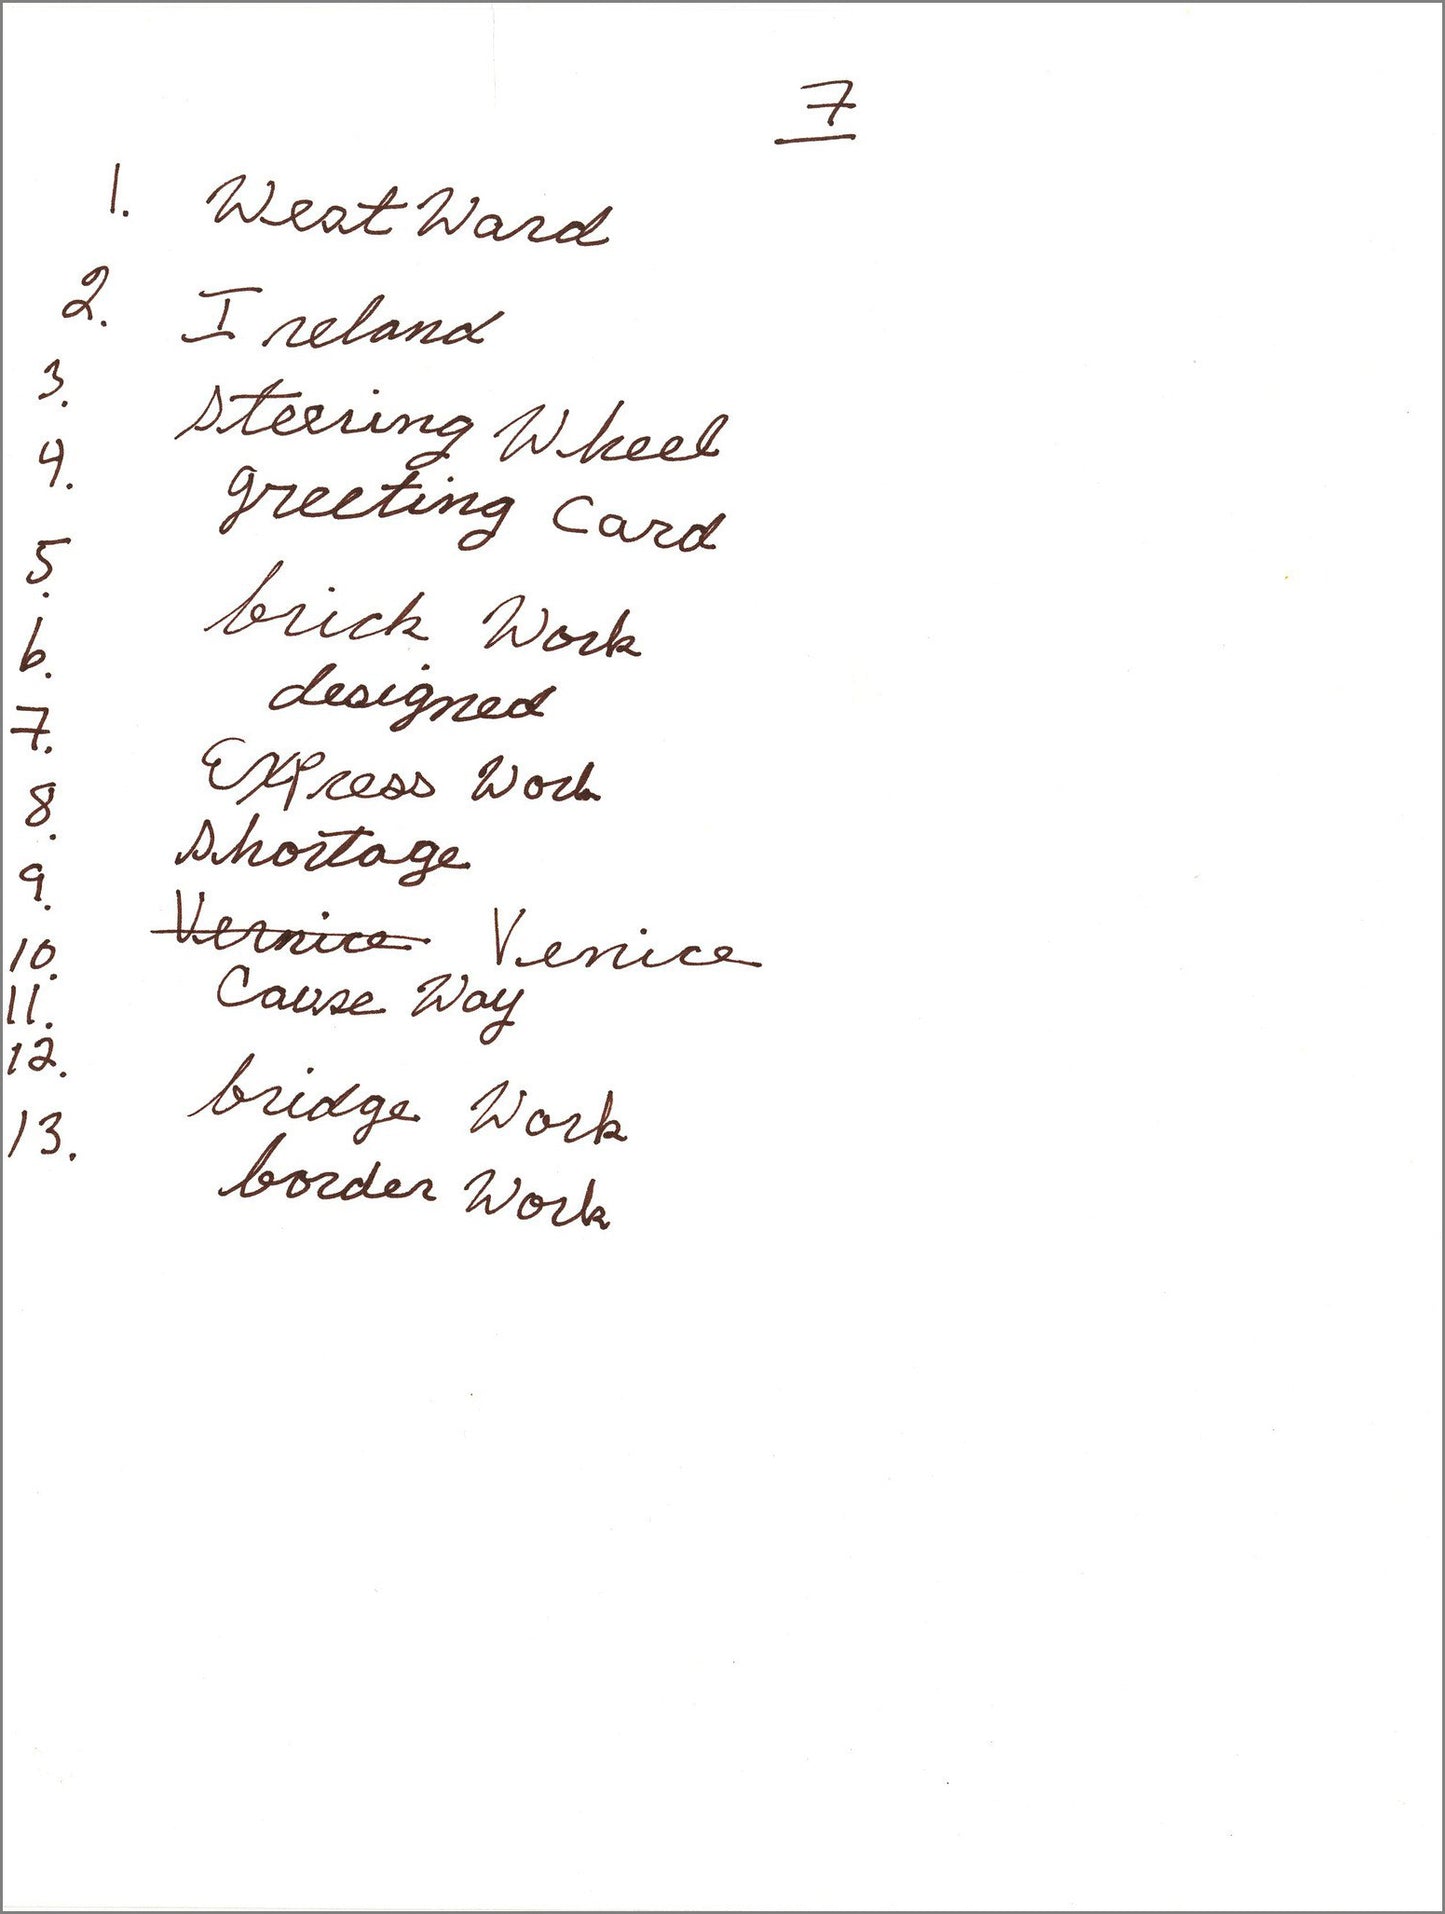 7
1. West Ward
2. Ireland
3. Steering Wheel
4. greeting Card
5. brick Work
6. designed
7. Express Work
8. Shortage
9. ~~Vernice~~ Venice
10. Cause Way
11.
12. bridge Work
13. border Work